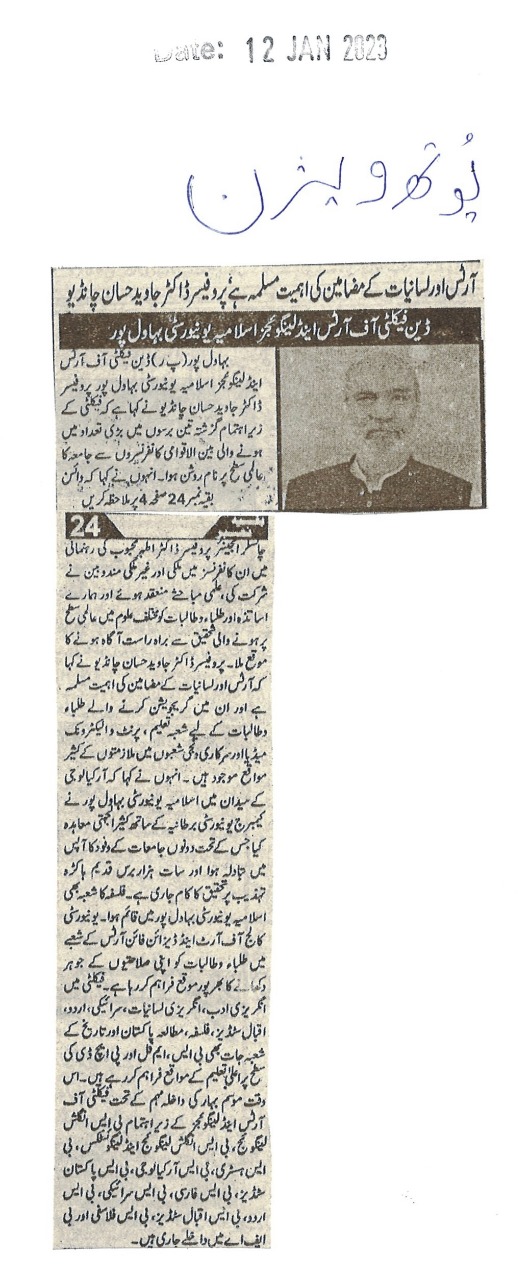 Date: 12 JAN 2023
یُوتھ ویژن
آرٹس اور لسانیات کے مضامین کی اہمیت مسلمہ ہے، پروفیسر ڈاکٹر جاوید حسان چانڈیو
ڈین فیکلٹی آف آرٹس اینڈ لینگوئجز اسلامیہ یونیورسٹی بہاول پور
بہاول پور (پ ر) ڈین فیکلٹی آف آرٹس
اینڈ لینگوئجز اسلامیہ یونیورسٹی بہاول پور پروفیسر
ڈاکٹر جاوید حسان چانڈیو نے کہا ہے کہ فیکلٹی کے
زیر اہتمام گزشتہ تین برسوں میں بڑی تعداد میں
ہونے والی بین الاقوامی کانفرنسوں سے جامعہ کا
عالمی سطح پر نام روشن ہوا۔ انہوں نے کہا کہ وائس
بقیہ نمبر 24 صفحہ 4 پر ملاحظہ کریں
بقیہ نمبر 24
چانسلر انجینئر پروفیسر ڈاکٹر اطہر محبوب کی رہنمائی
میں ان کانفرنسز میں ملکی اور غیر ملکی مندوبین نے
شرکت کی، علمی مباحثے منعقد ہوئے اور ہمارے
اساتذہ اور طلباء وطالبات کو مختلف علوم میں عالمی سطح
پر ہونے والی تحقیق سے براہ راست آگاہ ہونے کا
موقع ملا۔ پروفیسر ڈاکٹر جاوید حسان چانڈیو نے کہا
کہ آرٹس اور لسانیات کے مضامین کی اہمیت مسلمہ
ہے اور ان میں گریجویشن کرنے والے طلباء
وطالبات کے لیے شعبہ تعلیم، پرنٹ و الیکٹرونک
میڈیا اور سرکاری ونجی شعبوں میں ملازمتوں کے کثیر
مواقع موجود ہیں۔ انہوں نے کہا کہ آرکیالوجی
کے میدان میں اسلامیہ یونیورسٹی بہاول پور نے
کیمبرج یونیورسٹی برطانیہ کے ساتھ کثیر الجہتی معاہدہ
کیا جس کے تحت دونوں جامعات کے وفود کا آپس
میں تبادلہ ہوا اور سات ہزار برس قدیم ہاکڑہ
تہذیب پر تحقیق کا کام جاری ہے۔ فلسفہ کا شعبہ بھی
اسلامیہ یونیورسٹی بہاول پور میں قائم ہوا۔ یونیورسٹی
کالج آف آرٹ اینڈ ڈیزائن فائن آرٹس کے شعبے
میں طلباء وطالبات کو اپنی صلاحتیوں کے جوہر
دکھانے کا بھرپور موقع فراہم کر رہا ہے۔ فیکلٹی میں
انگریزی ادب، انگریزی لسانیات، سرائیکی، اردو،
اقبال سٹڈیز، فلسفہ، مطالعہ پاکستان اور تاریخ کے
شعبہ جات بھی بی ایس، ایم فل اور پی ایچ ڈی کی
سطح پر اعلیٰ تعلیم کے مواقع فراہم کر رہے ہیں۔ اس
وقت موسم بہار کی داخلہ مہم کے تحت فیکلٹی آف
آرٹس اینڈ لینگوئجز کے زیر اہتمام بی ایس انگلش
لینگوئج، بی ایس انگلش لینگوئج اینڈ لینگوئسٹکس، بی
ایس ہسٹری، بی ایس آرکیالوجی، بی ایس پاکستان
سٹڈیز، بی ایس فارسی، بی ایس سرائیکی، بی ایس
اردو، بی ایس اقبال سٹڈیز، بی ایس فلاسفی اور بی
ایف اے میں داخلے جاری ہیں۔